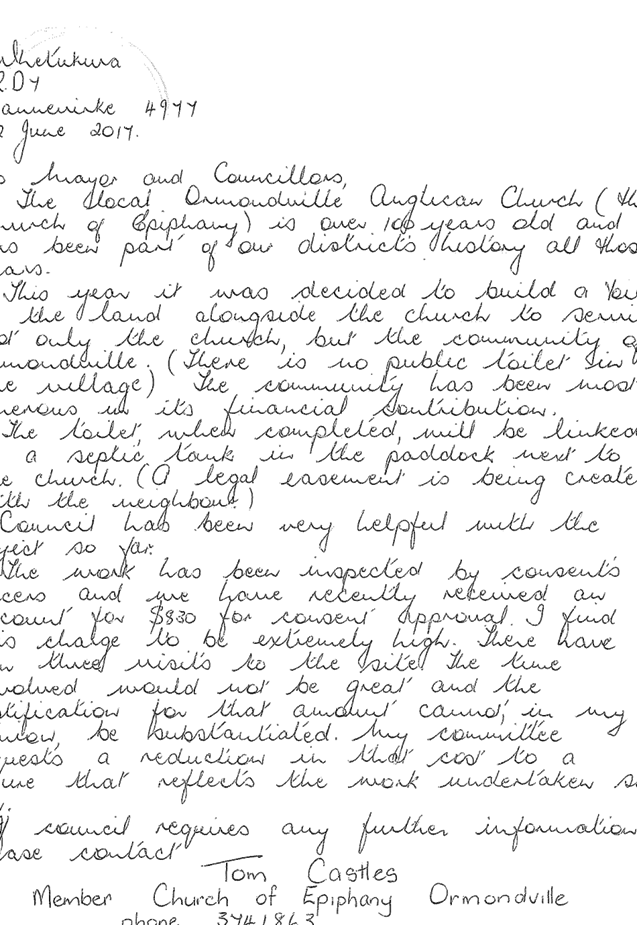 R.D4
annevirke 4977
2 June 2017.
o Mayor and Councillors,
The local Ormondville Anglican Church (th
urch of Epiphany) is over 100 years old and
s been part of our districts history all thos
ars.
This year it was decided to build a toi
the land alongside the church to servi
ot only the church, but the community o
mondville. (There is no public toilet in
e village) The community has been most
nerous in its financial contribution.
The toilet, when completed, will be linked
a septic tank in the paddock next to
e church. (A legal easement is being create
ith the neighbour!)
Council has been very helpful with the
ject so far.
The work has been inspected by consents
cers and we have recently received an
count for $830 for consent approval. I find
is charge to be extremely high. There have
n three visits to the site. The time
volved would not be great and the
tification for that amount cannot, in my
nion, be substantiated. My committee
quests a reduction in that cost to a
ure that reflects the work undertaken s
council requires any further information
ease contact
Tom Castles
Member Church of Epiphany Ormondville
phone 3741863